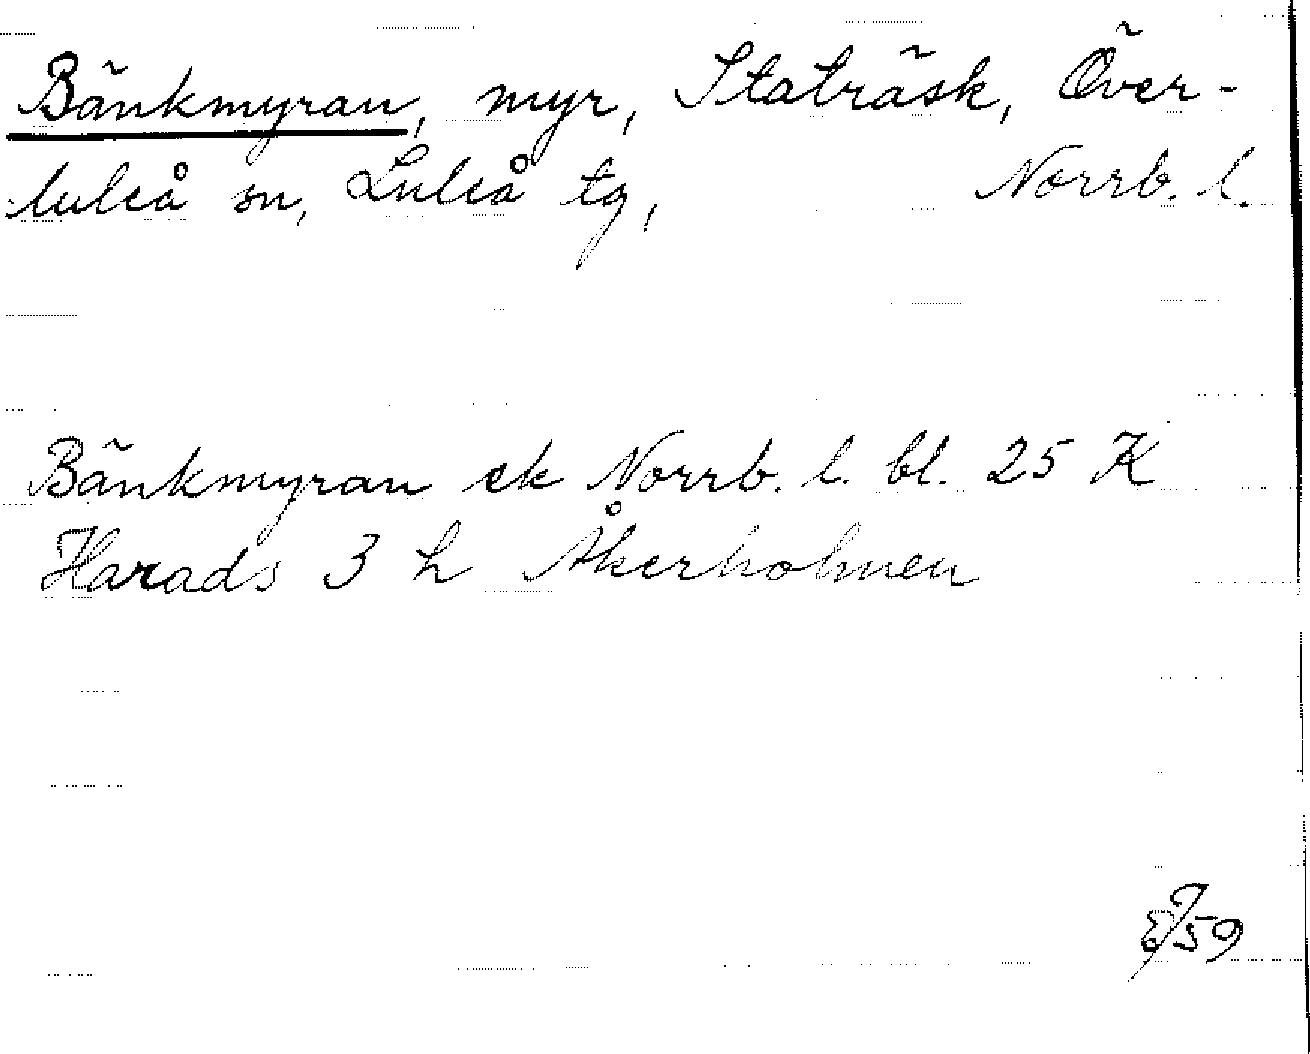 Bänkmyran, myr, Staträsk, Över-
luleå sn, Luleå tg, Norrb. l.
Bänkmyran ek Norrb. l. bl. 25 K
Harads 3 h Åkerholmen